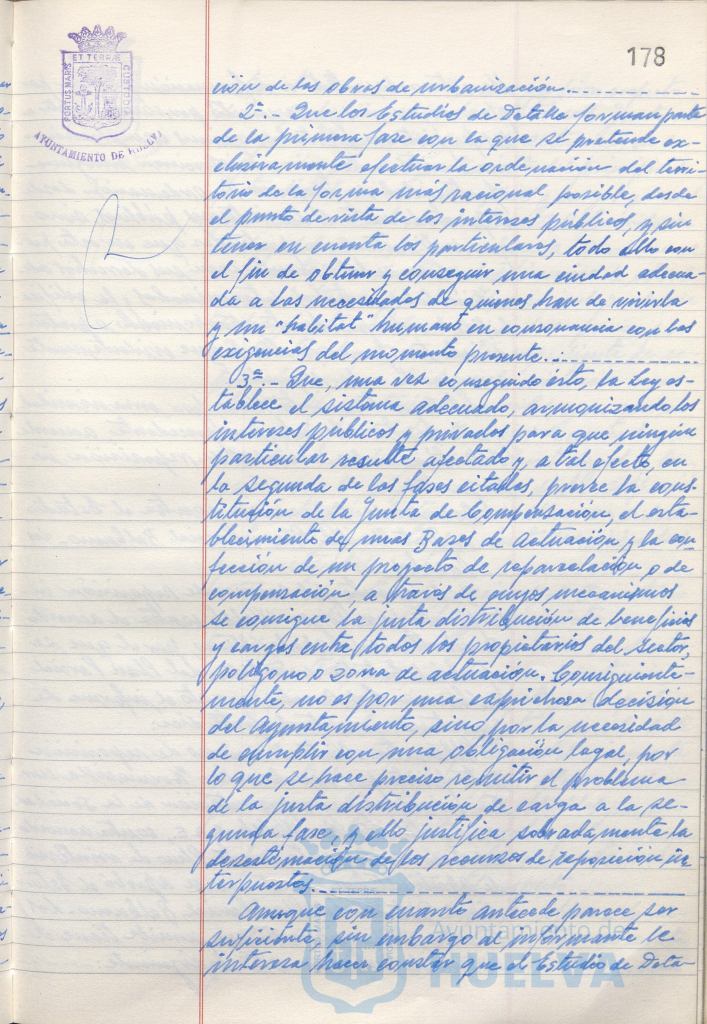 178
PORTUS MARIS ET TERRÆ CUSTODIA
AYUNTAMIENTO DE HUELVA
ción de las obras de urbanización.
2º.- Que los Estudios de Detalle forman parte
de la primera fase con la que se pretende ex-
clusivamente efectuar la ordenación del terri-
torio de la forma más racional posible, desde
el punto de vista de los intereses públicos, y sin
tener en cuenta los particulares, todo ello con
el fin de obtener y conseguir una ciudad adecua-
da a las necesidades de quienes han de vivirla
y un "habitat" humano en consonancia con las
exigencias del momento presente.
3º.- Que, una vez conseguido ésto, la Ley es-
tablece el sistema adecuado, armonizando los
intereses públicos y privados para que ningún
particular resulte afectado y, a tal efecto, en
la segunda de las fases citadas, prevee la cons-
titución de la Junta de Compensación, el esta-
blecimiento de unas Bases de Actuación y la con-
fección de un proyecto de reparcelación o de
compensación, a través de cuyos mecanismos
se consigue la justa distribución de beneficios
y cargas entre todos los propietarios del sector,
polígono o zona de actuación. Consiguiente-
mente, no es por una caprichosa decisión
del Ayuntamiento, sino por la necesidad
de cumplir con una obligación legal, por
lo que se hace preciso remitir el problema
de la justa distribución de carga a la se-
gunda fase, y ello justifica sobradamente la
desestimación de los recursos de reposición in-
terpuestos.
Aunque con cuanto antecede parece ser
suficiente, sin embargo al informante le
interesa hacer constar que el Estudio de Deta-
Ayuntamiento de
HUELVA